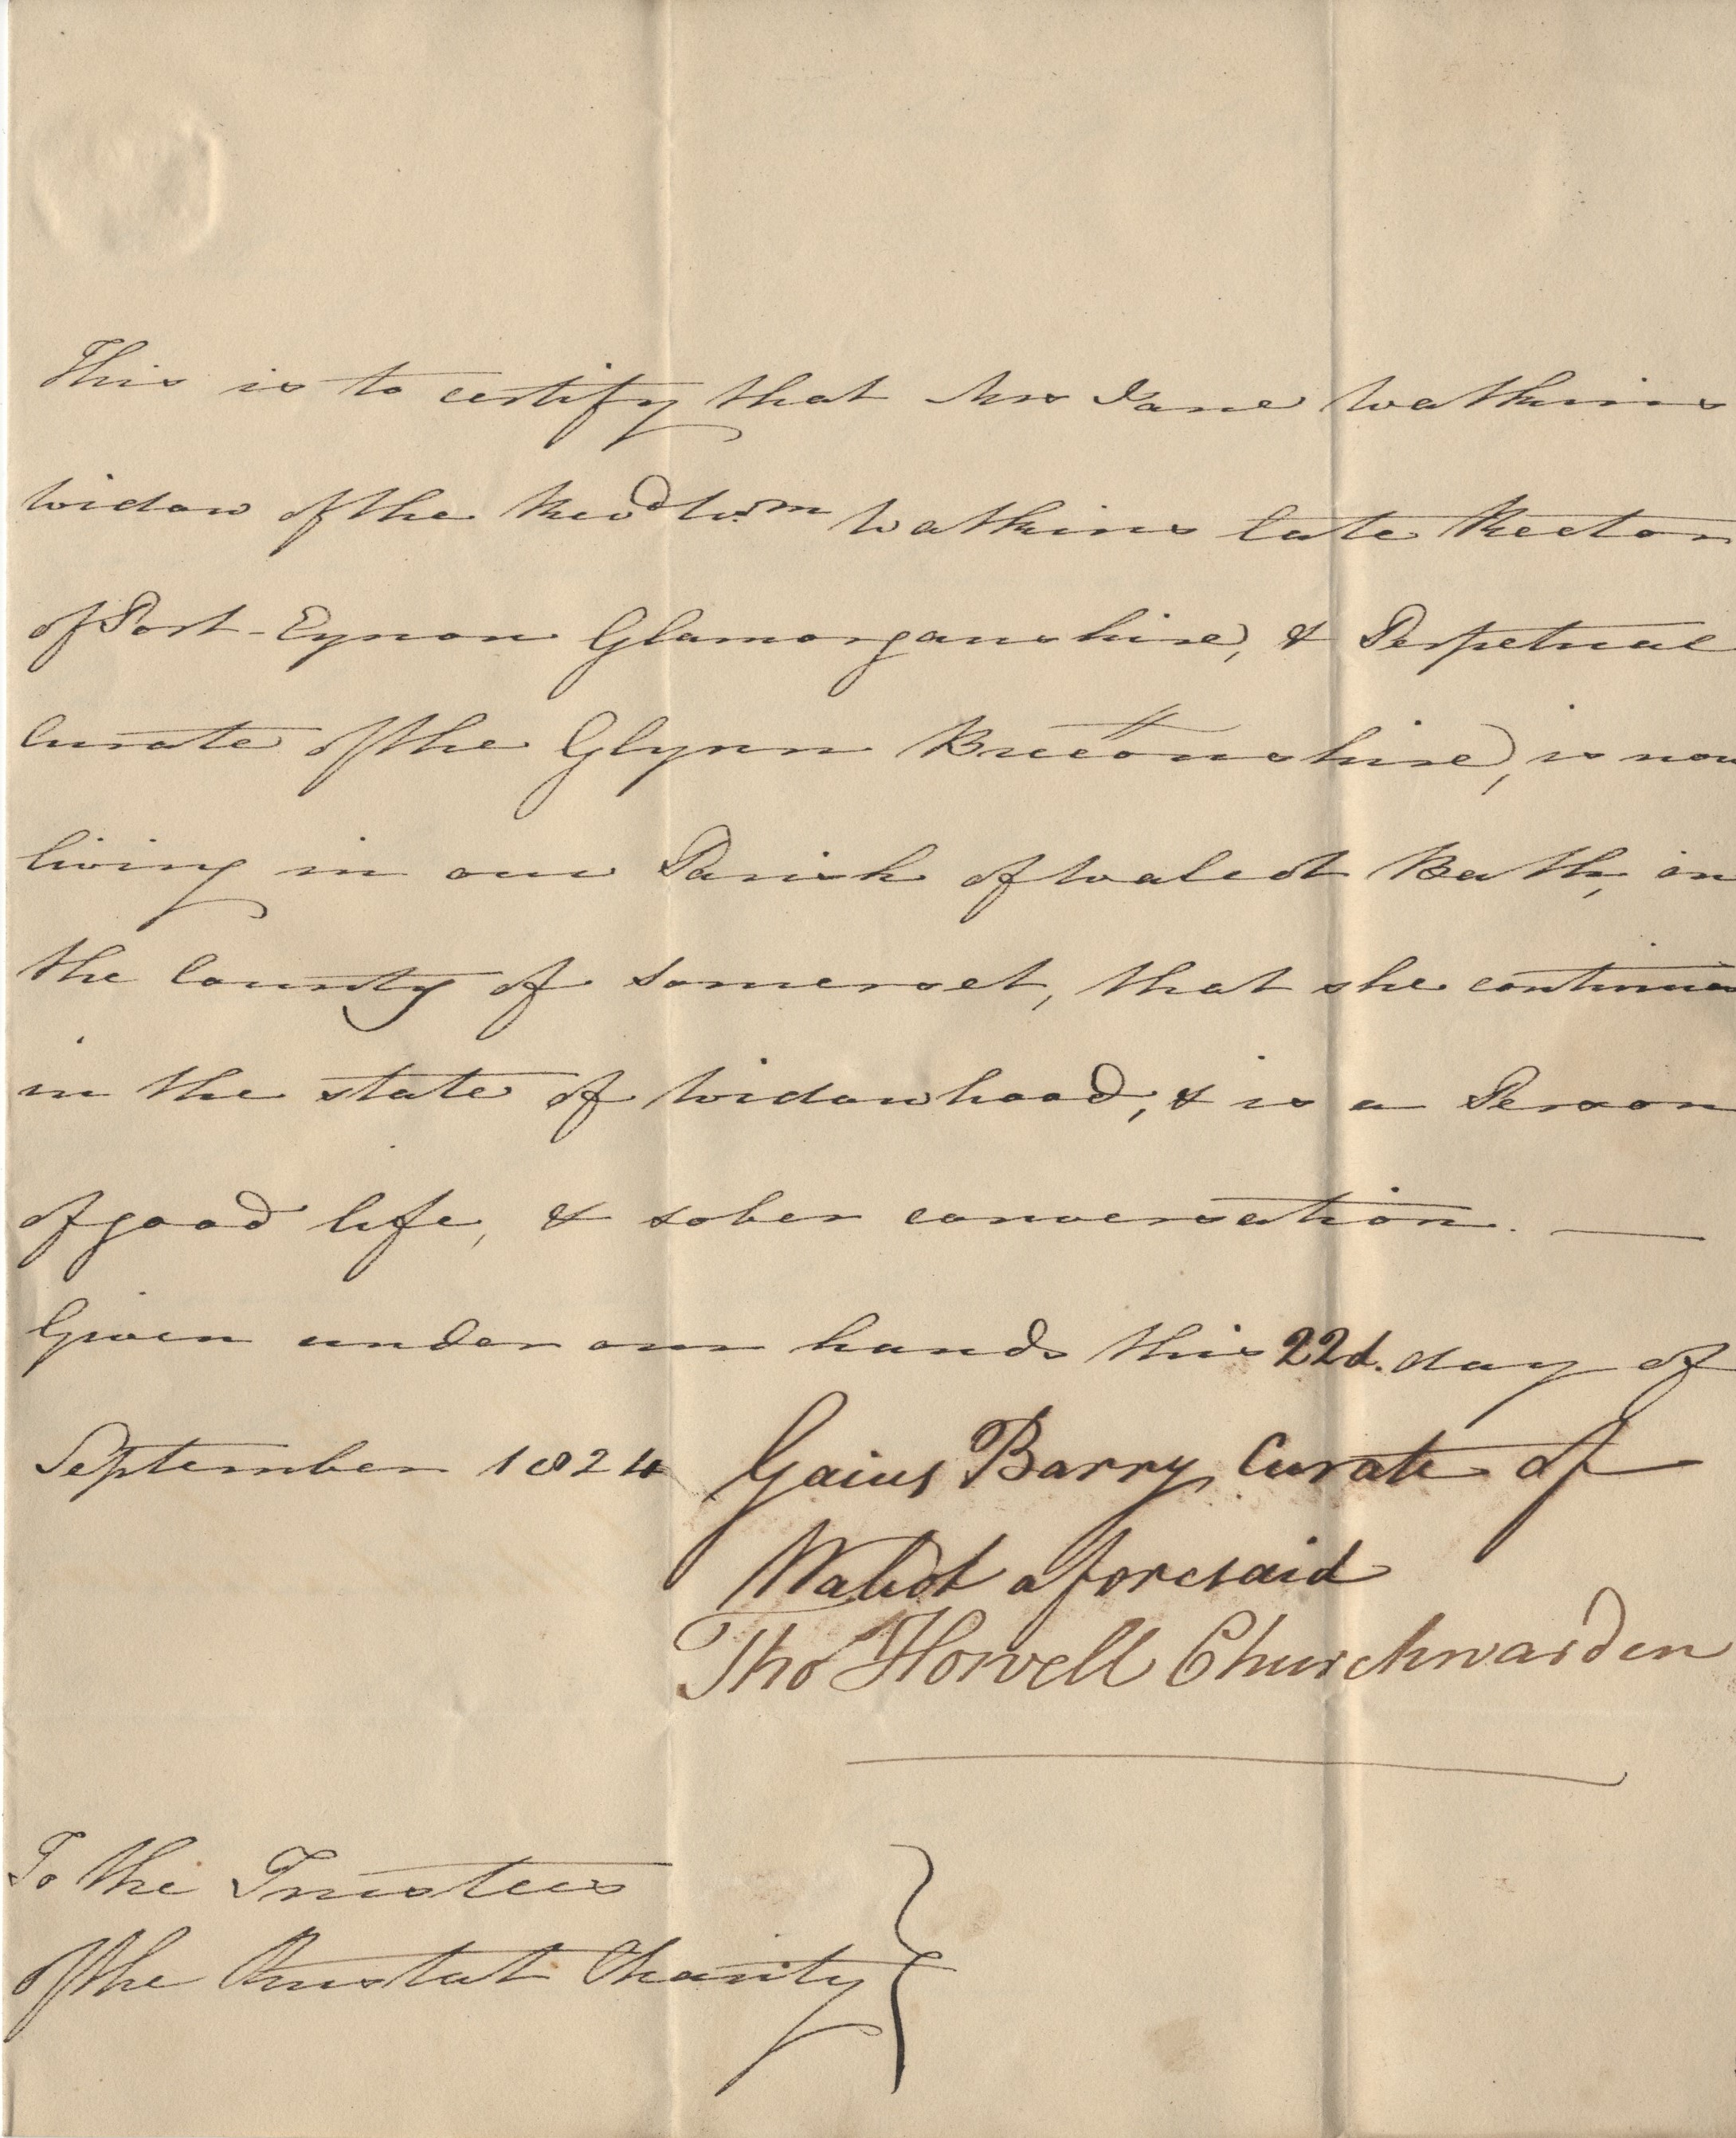 This is to certify that Mrs Jane Watkins
Widow of the Revd Wm Watkins late Rector
of Port-Eynon Glamorganshire, & Perpetual
Curate of the Glynn Brecconshire, is now
living in our Parish of Walcot Bath, in
the County of Somerset, that she continues
in the state of Widowhood, & is a Person
of good life, & sober conversation. —
Given under our hands this 22d. day of
September 1824 Gaius Barry Curate of
Walcot aforesaid
Tho Howell Churchwarden
To the Trustees
of the Rustat Charity